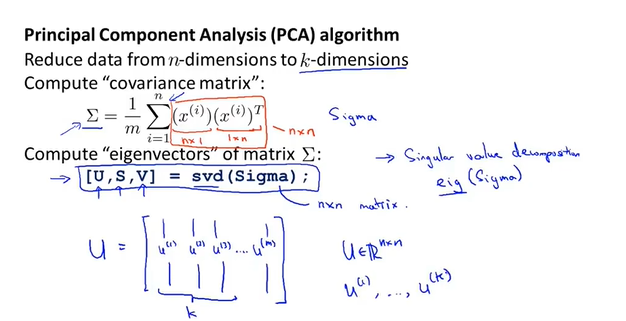 Principal Component Analysis (PCA) algorithm
Reduce data from n-dimensions to k-dimensions
Compute “covariance matrix”:
Σ = 1/m ∑_{i=1}^{n} (x^{(i)})(x^{(i)})^T
n×1 1×n
n×n
Sigma
Compute “eigenvectors” of matrix Σ:
→ Singular value decomposition
→ [U,S,V] = svd(Sigma);
eig(Sigma)
n×n matrix.
U = [ u^{(1)} u^{(2)} u^{(3)} .... u^{(m)} ]
k
U∈ℝ^{n×n}
u^{(1)}, ..., u^{(k)}